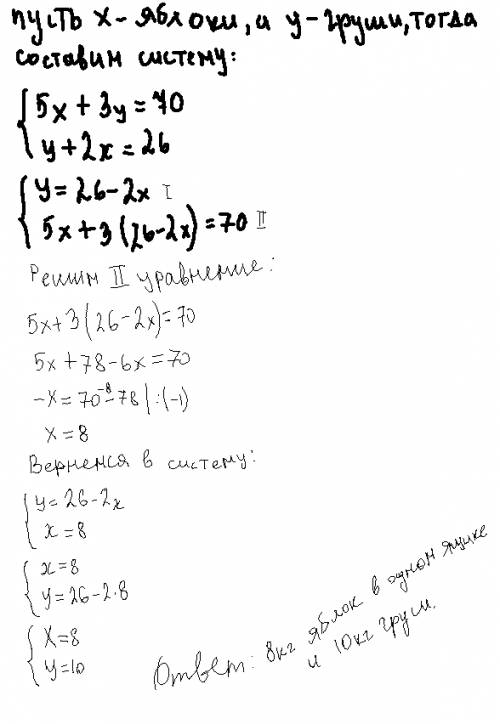 пусть x - яблоки, и y - груши, тогда
составим систему:
{5x + 3y = 70
{y + 2x = 26
{y = 26 - 2x I
{5x + 3(26 - 2x) = 70 II
Решим II уравнение:
5x + 3(26 - 2x) = 70
5x + 78 - 6x = 70
-x = 70 - 78 | : (-1)
-8
x = 8
Вернемся в систему:
{y = 26 - 2x
{x = 8
{x = 8
{y = 26 - 2·8
{x = 8
{y = 10
Ответ: 8кг яблок в одном ящике
и 10кг груш.